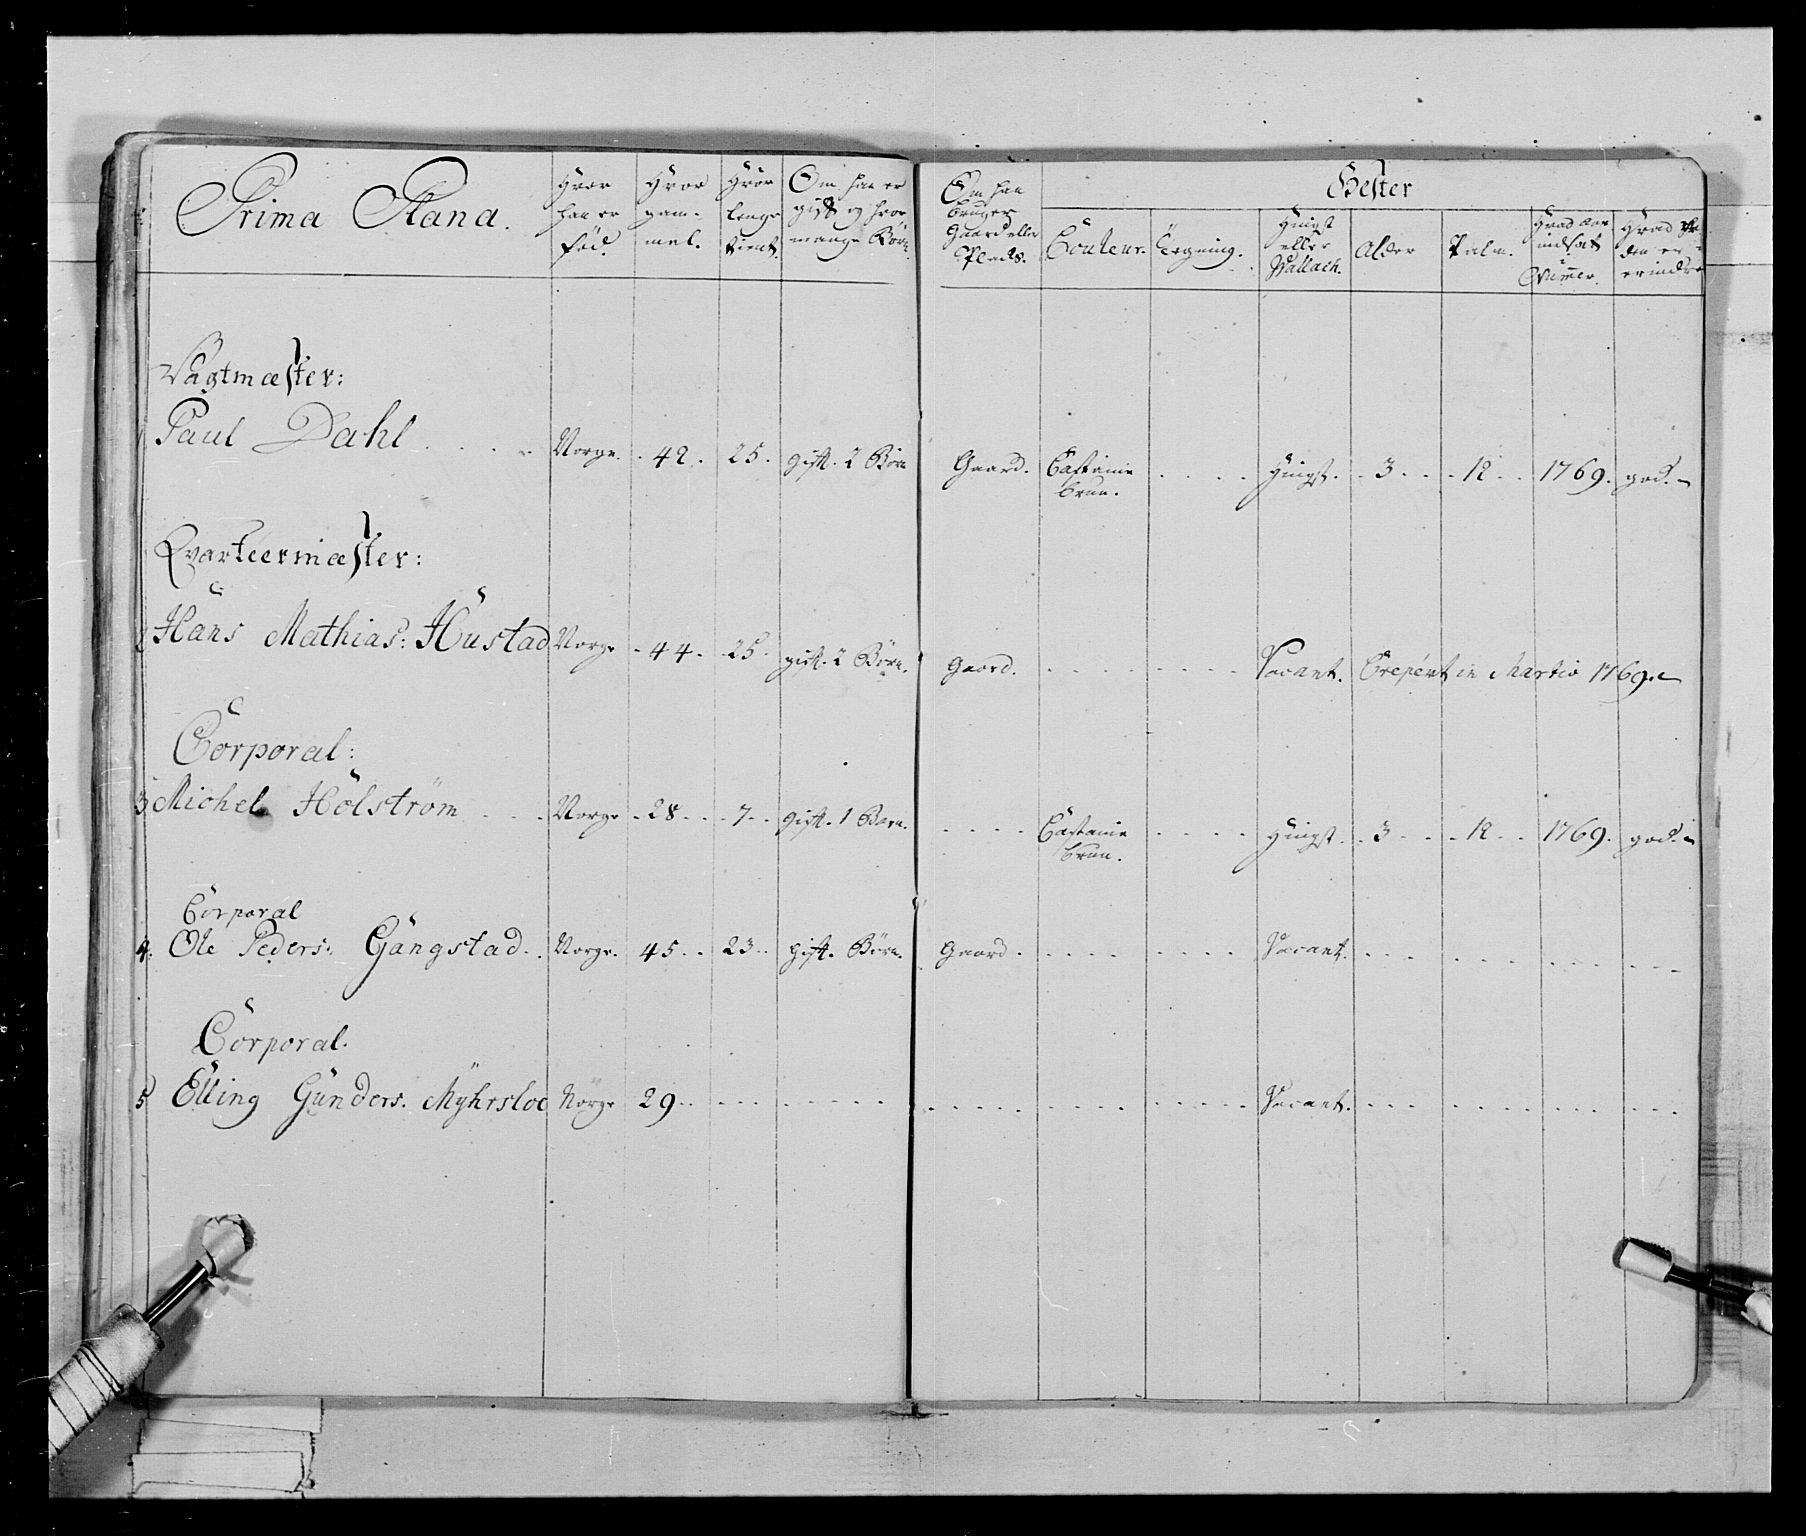 Prima Plana.
Hvor han er fød.
Hvor gam- mel.
Hvor lenge tient.
Om han er gift og hvor mange Börn.
Om han bruger Gaard eller Plads.
Hester
Couleur.
Tegning.
Hingst eller Wallach.
Alder
Palm.
Hvad Aar indsat
Hvad
Vagtmæster:
Paul Dahl . . . . Norge. 42. 25. gift. 2 Börn Gaard. Castanie brun. . . . . Hingst. 3. . . 12. . 1769. god.
Qvarteermæster:
Hans Mathias: Hustad Norge 44. 25. gift. 2 Börn. Gaard. . . . . Vacant. Crepert in Martio 1769.
Corporal:
3 Michel Holström . . . Norge 28. . 7. . gift. 1 Barn. . . . . Castanie brun. . . . . Hingst. 3. . . 12. . 1769. god.
Corporal
4. Ole Peders: Gangstad. . Norge. 45. . 23. . gift. Börn. Gaard. . . . . Vacant. . . .
Corporal.
5 Elling Gunders. Myhrsloe Norge 29. . . . . Vacant. . . .